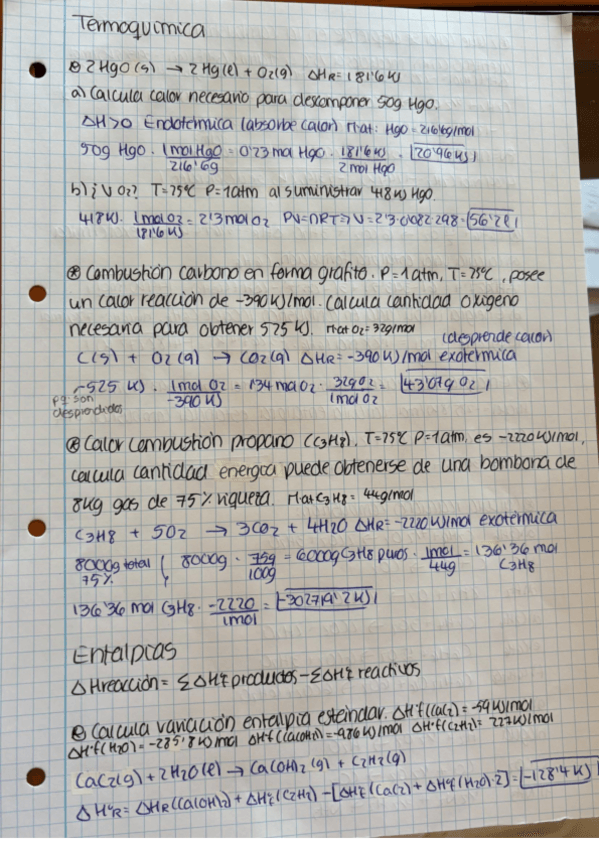 Termoquímica
⊛ 2HgO(s) → 2Hg(l) + O2(g) ΔHR = 181'6 KJ
a) Calcula calor necesario para descomponer 50g HgO.
ΔH>0 Endotérmica (absorbe calor) Mat: HgO = 216'6g/mol
50g HgO · 1mol HgO / 216'6g = 0'23 mol HgO · 181'6 KJ / 2mol HgO = 20'96 KJ
b) ¿V O2? T=25ºC P=1atm al suministrar 418 KJ HgO.
418 KJ · 1mol O2 / 181'6 KJ = 2'3 mol O2 PV=nRT ⇒ V = 2'3·0'082·298 = 56'2 l
⊛ Combustión carbono en forma grafito. P=1atm, T=25ºC, posee
un calor reacción de -390 KJ/mol. Calcula cantidad oxígeno
necesaria para obtener 525 KJ. Mat O2 = 32g/mol
(desprende calor)
C(s) + O2(g) → CO2(g) ΔHR = -390 KJ/mol exotérmica
-525 KJ · 1mol O2 / -390 KJ = 1'34 mol O2 · 32g O2 / 1mol O2 = 43'07g O2
pq son
desprendidos
⊛ Calor combustión propano (C3H8). T=25ºC P=1atm. es -2220 KJ/mol,
calcula cantidad energía puede obtenerse de una bombona de
8kg gas de 75% riqueza. Mat C3H8 = 44g/mol
C3H8 + 5O2 → 3CO2 + 4H2O ΔHR = -2220 KJ/mol exotérmica
8000g total
75%
8000g · 75g / 100g = 6000g C3H8 puros · 1mol / 44g = 136'36 mol C3H8
136'36 mol C3H8 · -2220 / 1mol = -302719'2 KJ
Entalpías
ΔHreacción = ΣΔHºf productos - ΣΔHºf reactivos
⊛ Calcula variación entalpía estándar. ΔHºf(CaC2) = -59 KJ/mol
ΔHºf(H2O) = -285'8 KJ/mol ΔHºf(Ca(OH)2) = -986 KJ/mol ΔHºf(C2H2) = 227 KJ/mol
CaC2(g) + 2H2O(l) → Ca(OH)2(g) + C2H2(g)
ΔHºR = ΔHR(Ca(OH)2) + ΔHºf(C2H2) - [ΔHºf(CaC2) + ΔHºf(H2O)·2] = -128'4 KJ